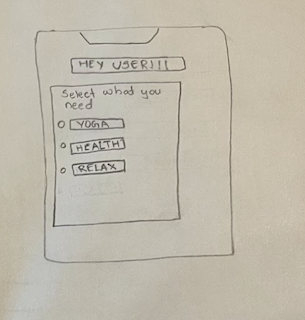 HEY USER!!!
Select whad you
need
YOGA
HEALTH
RELAX